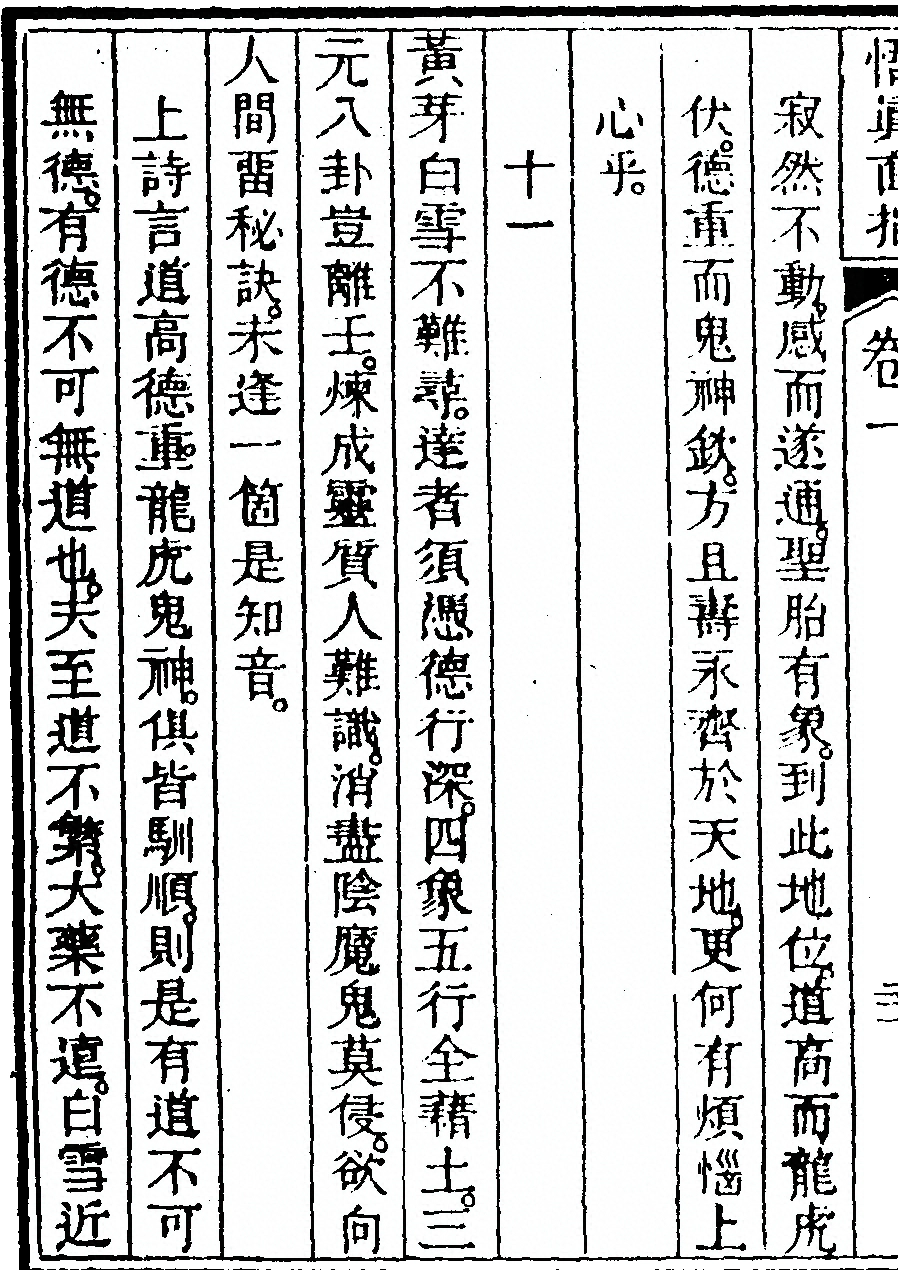 悟眞直指 卷一 三
寂然不動。感而遂通。聖胎有象。到此地位。道高而龍虎
伏。德重而鬼神欽。方且壽永齊於天地。更何有煩惱上
心乎。
十一
黃芽白雪不難尋。達者須憑德行深。四象五行全藉土。三
元八卦豈離壬。煉成靈質人難識。消盡陰魔鬼莫侵。欲向
人間畱秘訣。未逢一箇是知音。
上詩言道高德重。龍虎鬼神。俱皆馴順。則是有道不可
無德。有德不可無道也。夫至道不繁。大藥不遠。白雪近